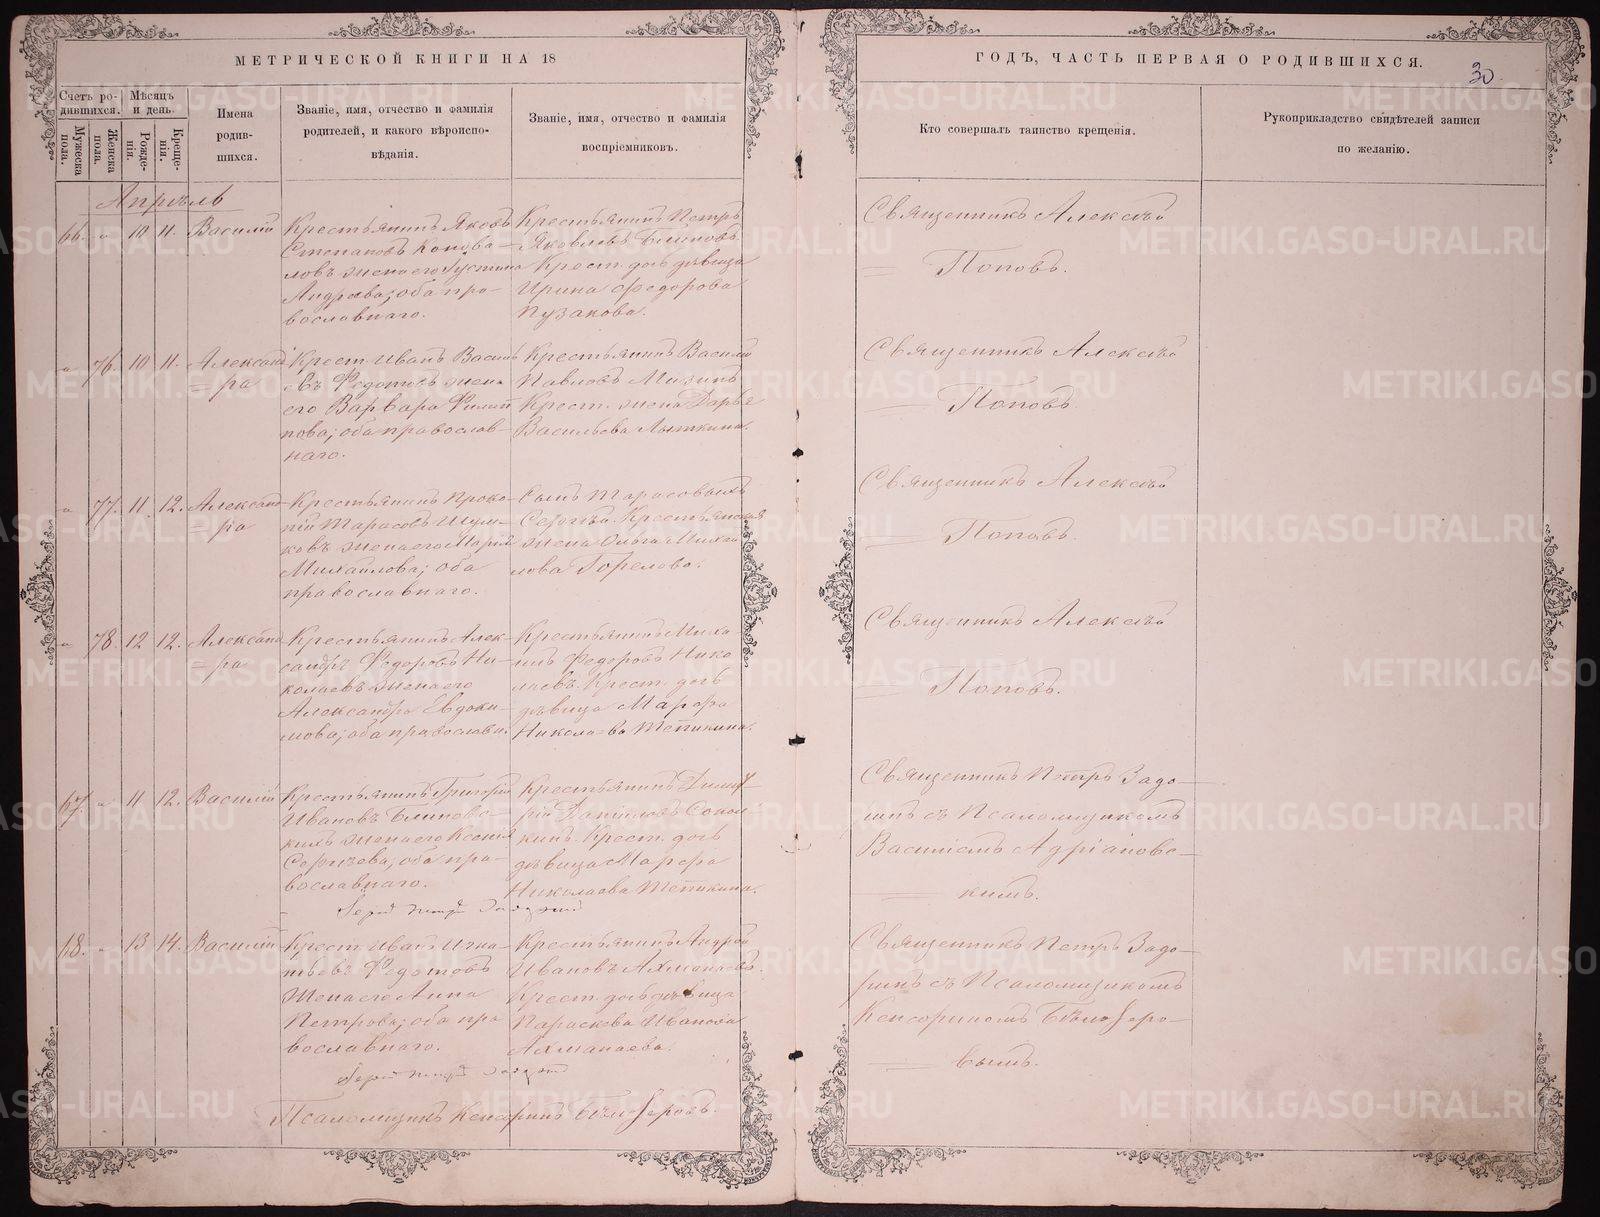 МЕТРИЧЕСКОЙ КНИГИ НА 18
ГОДЪ, ЧАСТЬ ПЕРВАЯ О РОДИВШИХСЯ.
30
Счетъ ро-
дившихся.
Мужеска
пола.
Женска
пола.
Мѣсяцъ
и день.
Рожде-
нія.
Креще-
нія.
Имена
родив-
шихся.
Званіе, имя, отчество и фамилія
родителей, и какого вѣроиспо-
вѣданія.
Званіе, имя, отчество и фамилія
воспріемниковъ.
Кто совершалъ таинство крещенія.
Рукоприкладство свидѣтелей записи
по желанію.
Апрѣль
66. 10 11. Василій
Крестьянинъ Яковъ
Степановъ Конова-
ловъ жена его Іустина
Андреева; оба пра-
вославнаго.
Крестьянинъ Петръ
Яковлевъ Блиновъ
Крест. дочь дѣвица
Ирина Федорова
Пузакова.
Священникъ Алексѣй
Поповъ.
76. 10 11. Александ-
ра
Крест. Иванъ Василь
евъ Федотовъ жена
его Варвара Филип
пова; оба православ-
наго.
Крестьянинъ Василій
Павловъ Мизинъ
Крест. жена Дарья
Васильева Лыткина.
Священникъ Алексѣй
Поповъ
77. 11 12. Александ-
ра
Крестьянинъ Проко-
пій Тарасовъ Шум-
ковъ жена его Марія
Михаилова; оба
православнаго.
Сынъ Тарасовыхъ
Сергѣй. Крестьянская
жена Ольга Михаи
лова Горелова.
Священникъ Алексѣй
Поповъ.
78. 12 12. Александ
ра
Крестьянинъ Алек-
сандръ Федоровъ Ни-
колаевъ жена его
Александра Евдоки-
мова; оба православн.
Крестьянинъ Миха-
илъ Федоровъ Нико
лаевъ. Крест. дочь
дѣвица Марфа
Николаева Тепикина.
Священникъ Алексѣй
Поповъ.
67. 11 12. Василій
Крестьянинъ Григорій
Ивановъ Блиновс-
кихъ жена его Ксенія
Сергѣева; оба пра-
вославнаго.
Крестьянинъ Димит-
рій Даниловъ Сокол-
кинъ. Крест. дочь
дѣвица Марфа
Николаева Тепикина.
Священникъ Петръ Задо-
ринъ съ Псаломщикомъ
Василіемъ Адріановс-
кимъ.
Іерей Петръ Задоринъ
68. 13 14. Василій
Крест. Иванъ Игна-
тьевъ Федотовъ
Жена его Анна
Петрова; оба пра
вославнаго.
Крестьянинъ Андрей
Ивановъ Ахманаевъ.
Крест. дочь дѣвица
Параскева Иванова
Ахманаева.
Священникъ Петръ Задо-
ринъ съ Псаломщикомъ
Кенсориномъ Бѣлозеро-
вымъ.
Іерей Петръ Задоринъ
Псаломщикъ Кенсоринъ Бѣлозеровъ.
METRIKI.GASO-URAL.RU